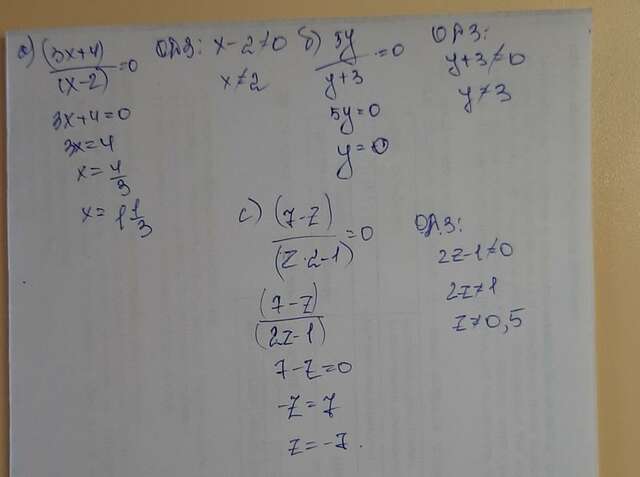 а) (3x+4)/(x-2) =0 ОДЗ: x-2≠0
x≠2
3x+4=0
3x=4
x=4/3
x=1 1/3
б) 5y/y+3 =0 ОДЗ:
y+3≠0
y≠3
5y=0
y=0
c) (7-z)/(z·2-1) =0 ОДЗ:
2z-1≠0
2z≠1
z≠0,5
(7-z)/(2z-1)
7-z=0
-z=7
z=-7.